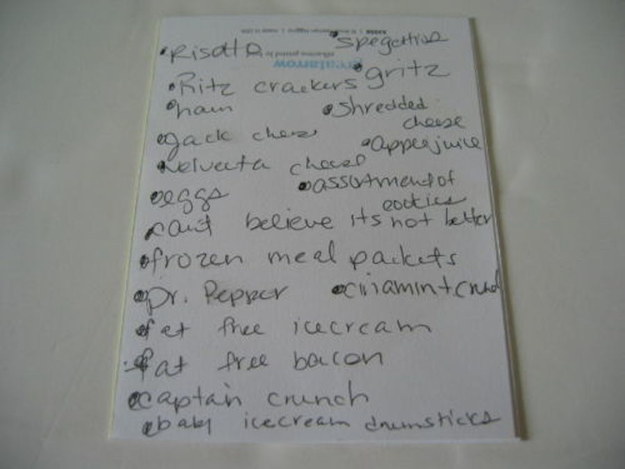 Risotto
spegettios
Ritz crackers
gritz
ham
shredded
cheese
jack chese
apple juice
velveeta chees
eggs
assortment of
cookies
cant believe its not better
frozen meal packets
Dr. Pepper
cinamint crunch
fat free icecream
fat free bacon
captain crunch
baby icecream drumsticks
greatarrow